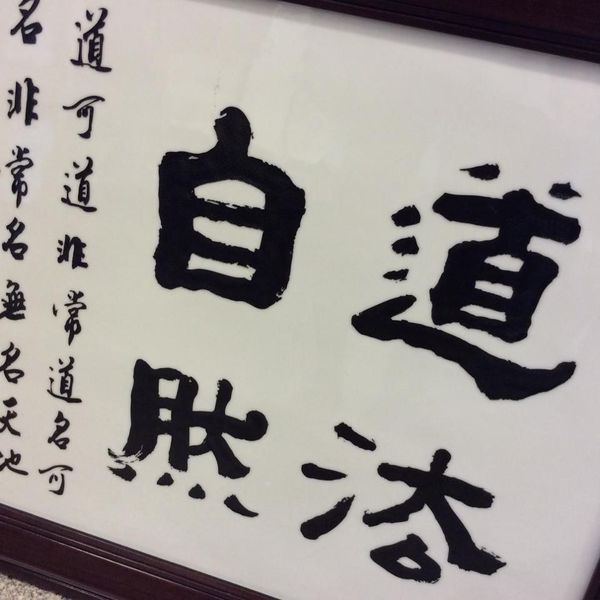 道法
自然
道可道非常道名可
名非常名無名天地